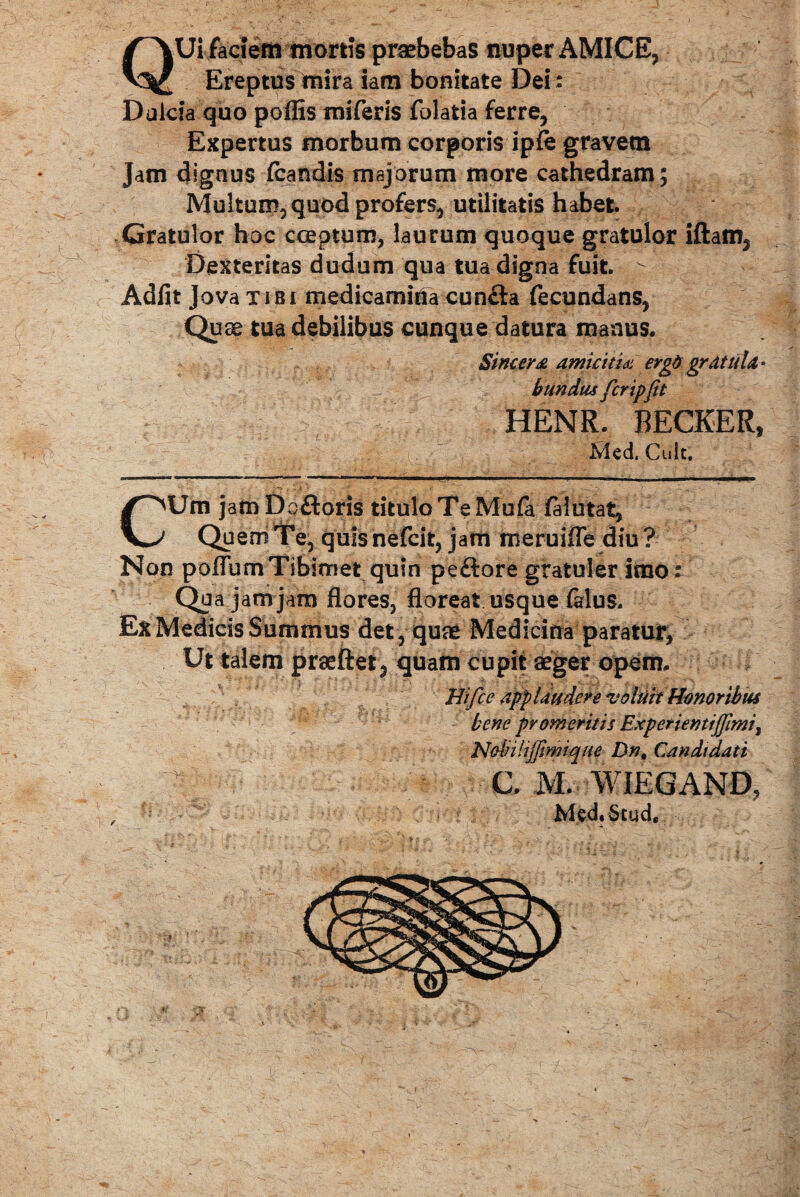 QUi faciem mortis præbebas nuper AMICE,
Ereptus mira iam bonitate Dei:
Dulcia quo poſſis miſeris ſolatia ferre,
Expertus morbum corporis ipſe gravem
Jam dignus ſcandis majorum more cathedram;
Multum, quod profers, utilitatis habet.
Gratulor hoc cœptum, laurum quoque gratulor iſtam,
Dexteritas dudum qua tua digna fuit.
Adſit Jova TIBI medicamina cuncta ſecundans,
Quæ tua debilibus cunque datura manus.
Sinceræ amicitiæ ergò gratula-
bundus ſcripſit
HENR. BECKER,
Med. Cult.
CUm jam Doctoris titulo Te Muſa ſalutat,
Quem Te, quis neſcit, jam meruiſſe diu?
Non poſſum Tibimet quin pectore gratuler imo:
Qua jam jam flores, floreat usque ſalus.
Ex Medicis Summus det, quæ Medicina paratur,
Ut talem præſtet, quam cupit æger opem.
Hiſce applaudere voluit Honoribus
bene promeritis Experientiſſimi,
Nobiliſſimique Dn. Candidati
C. M. WIEGAND,
Med. Stud.